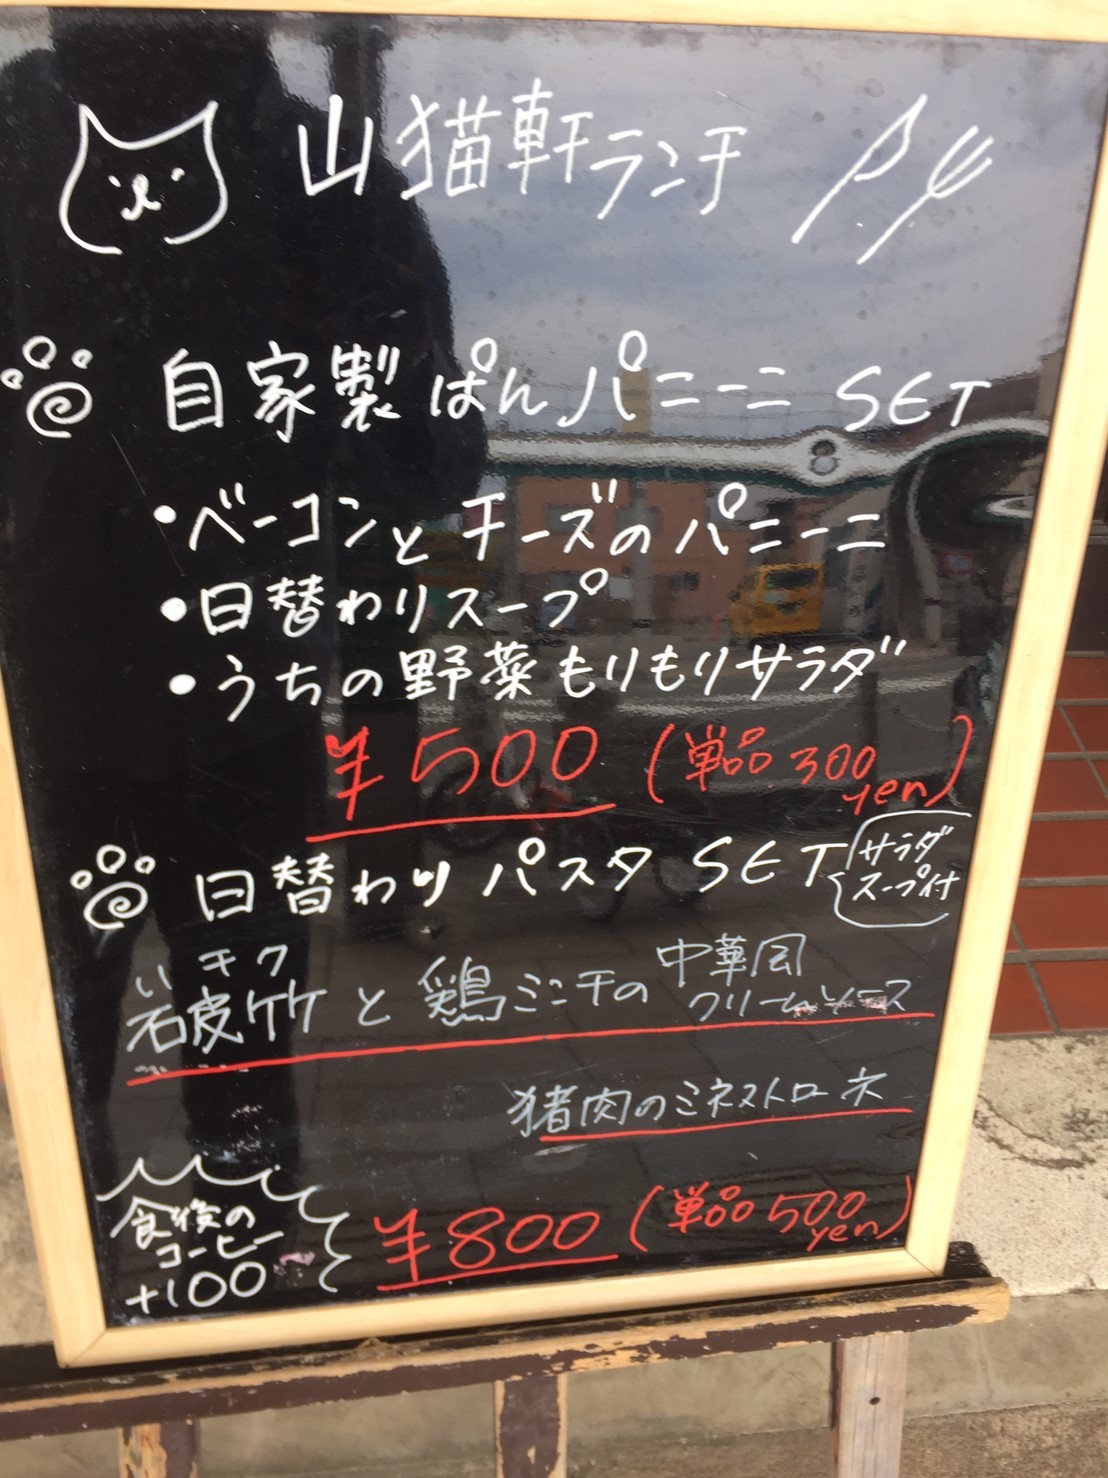 山猫軒ランチ
自家製ぱんパニーニ SET
・ベーコンとチーズのパニーニ
・日替わりスープ
・うちの野菜もりもりサラダ
¥500 (単品 300yen)
日替わりパスタ SET サラダ
スープ付
い チク
石皮竹と鶏ミンチの中華風
クリームソース
猪肉のミネストローネ
食後の
コーヒー
+100
¥800 (単品 500yen)